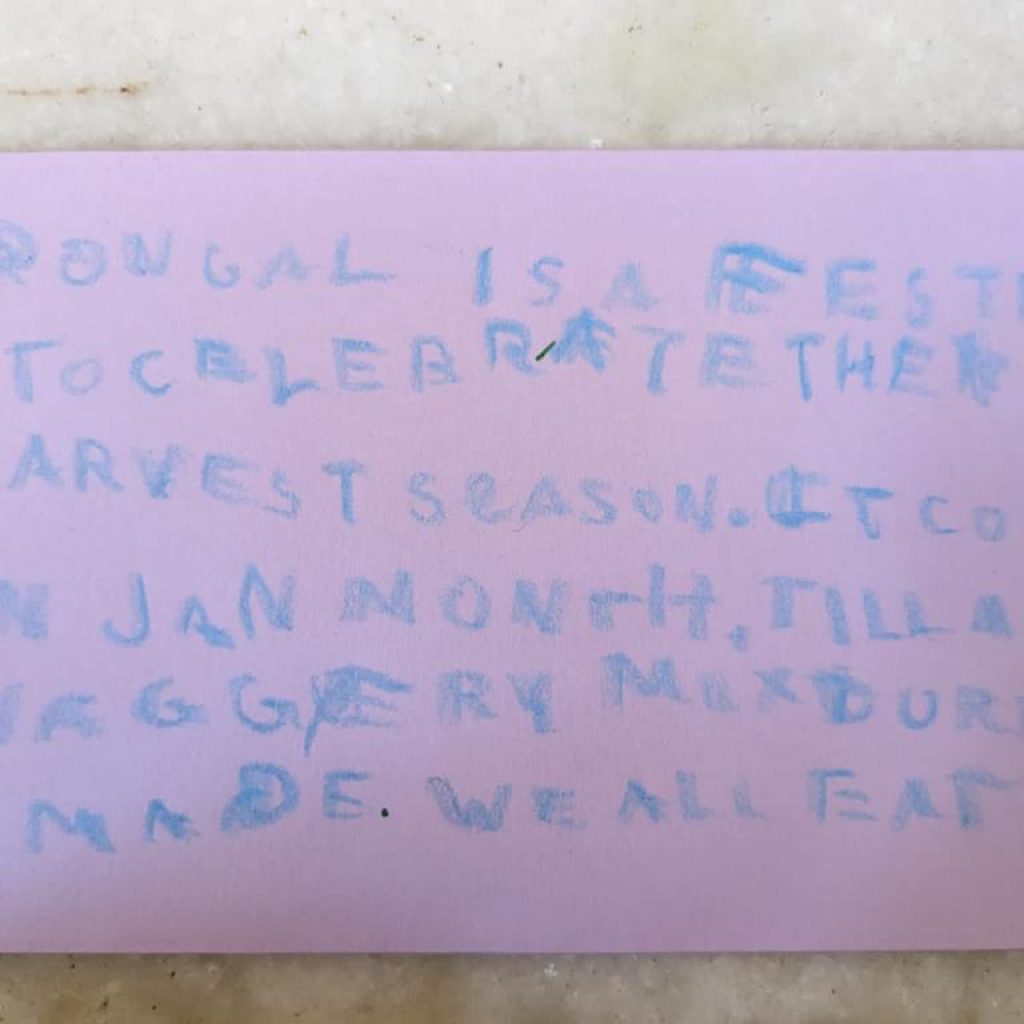 PONGAL IS A FESTI
TO CELEBRATE THE H
ARVEST SEASON. IT CO
N JAN MONTH. TILL A
JAGGERY MIXTURE
MADE. WE ALL EAT